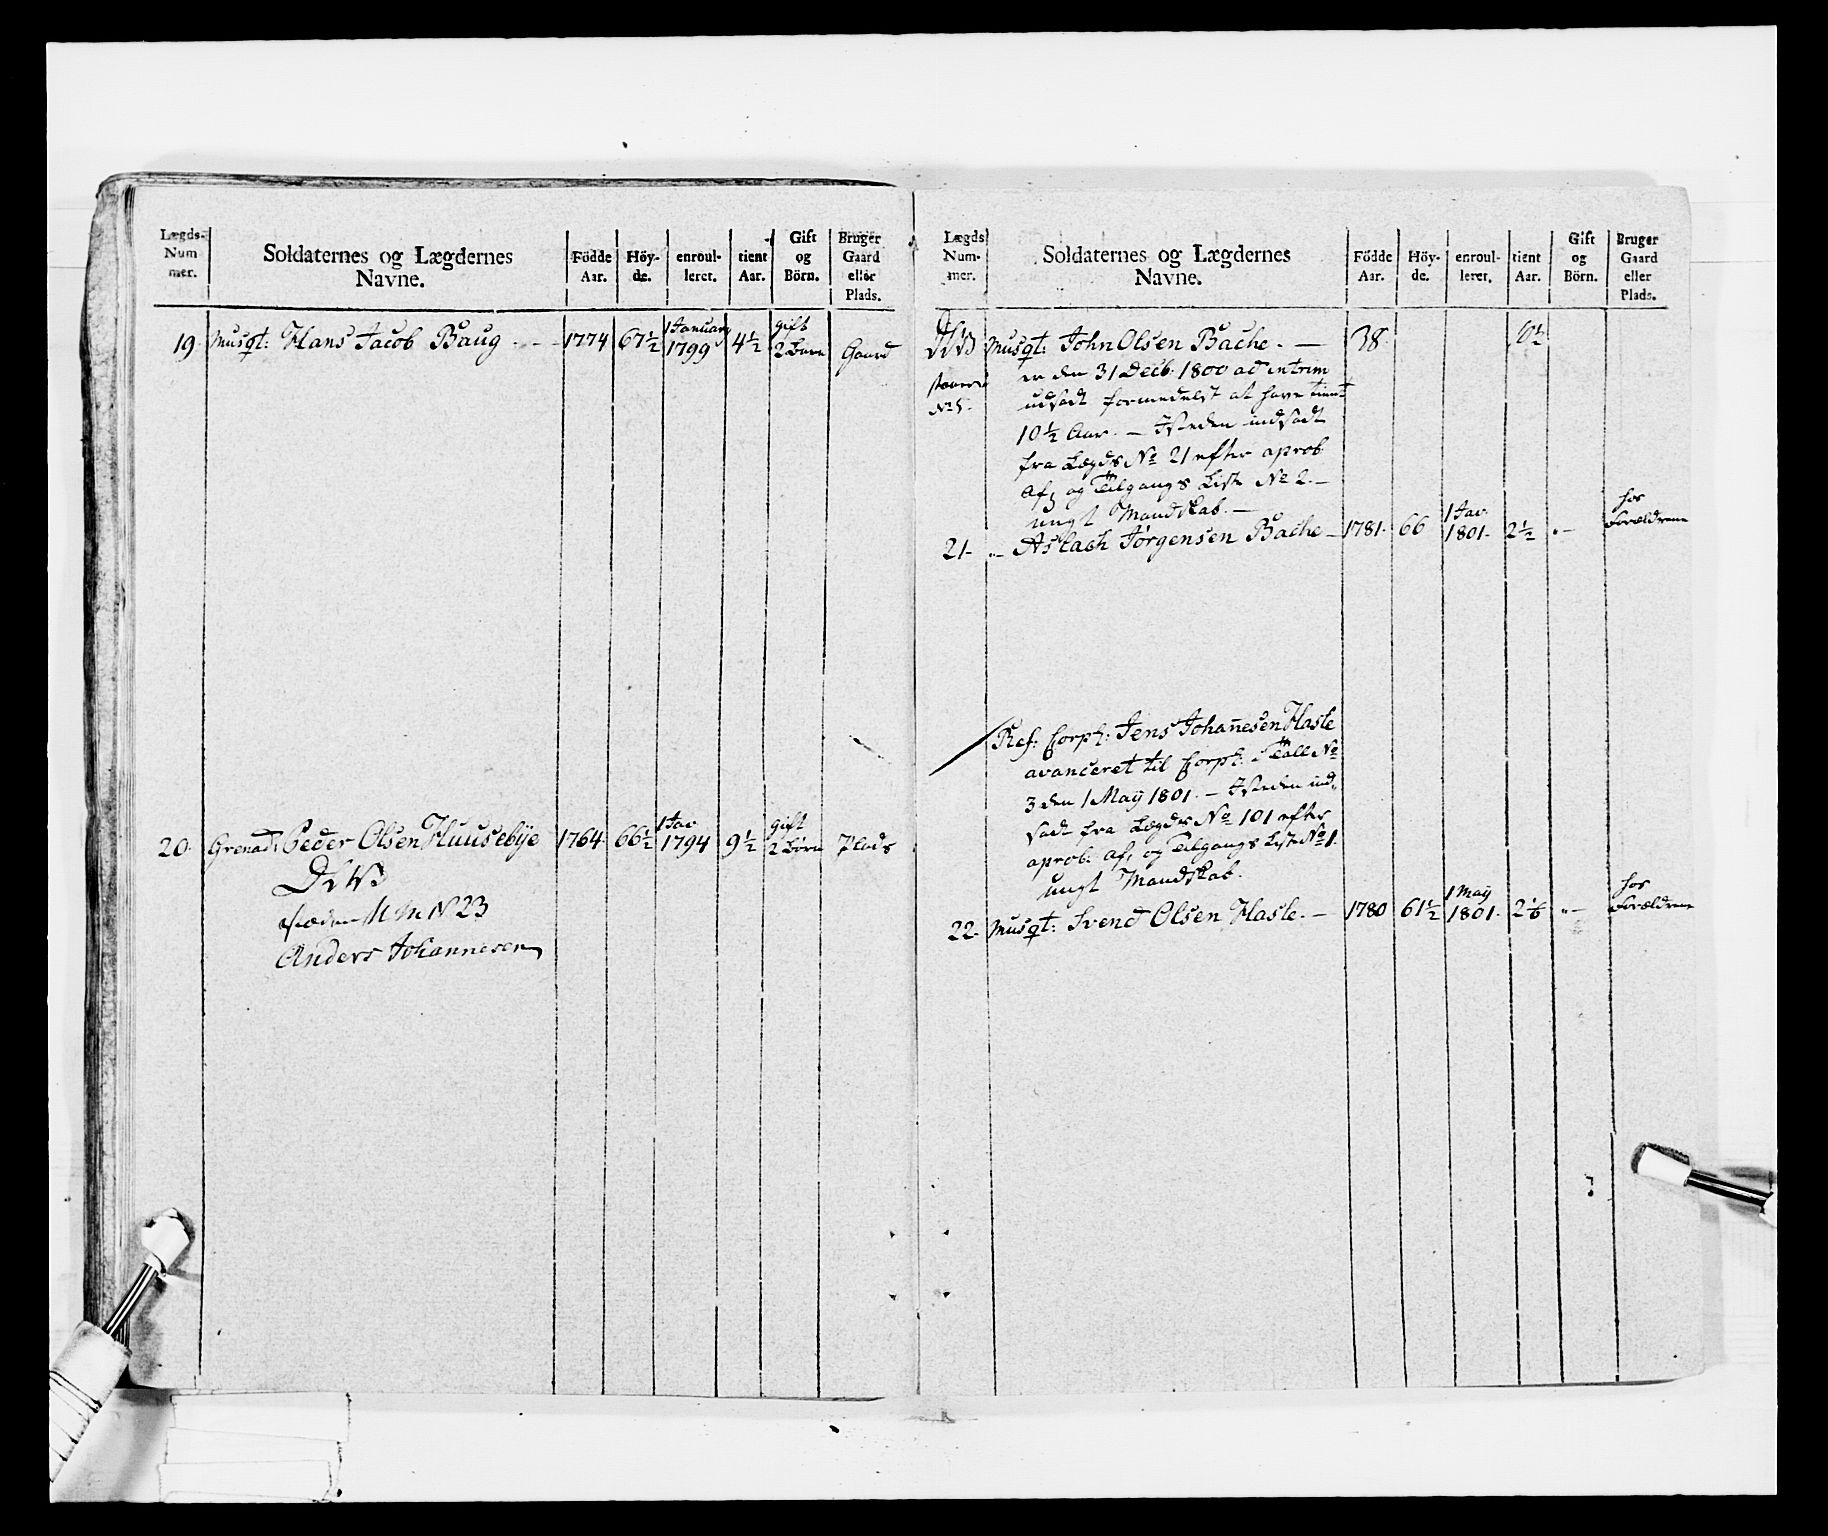 Lægds- Num- mer.
Soldaternes og Lægdernes Navne.
Födde Aar.
Höy- de.
enroul- leret.
tient Aar.
Gift og Börn.
Bruger Gaard eller Plads.
19 Musqt: Hans Jacob Baug 1774 67½ 1 Januar 1799 4½ gift 2 Børn Gaard
20 Grenad: Peder Olsen Huusebÿe 1764 66½ 1 Jav 1794 9½ gift 2 Børn Plads
N 23
Anders Johannesen
Lægds Num- mer.
Soldaternes og Lægdernes Navne.
Födde Aar.
Höy- de.
enroul- leret.
tient Aar.
Gift og Börn.
Bruger Gaard eller Plads.
Musqt: John Olsen Bache. — 38
No 5.
er den 31 Decb: 1800 ad intrim
udsadt formedelst at have tient
10½ Aar. — Isteden indsadt
fra Lægds No 21 efter aprob.
Af, og Tilgangs Liste No 2. —
ungt Mandskab. —
21. „ Aslach Jørgensen Bache 1781. 66 1 Jav. 1801. 2½ „— hos Forældrene
Ref: Corpl: Jens Johannesen Hasle
avanceret til Corpl: i Tall No
3 den 1 Maÿ 1801. — Isteden ind-
sadt fra Lægds No 101 efter
aprob. Af, og Tilgangs Liste No 1.
ungt Mandskab.
22. Musqt: Svend Olsen Hasle. — 1780 61½ 1 Maÿ 1801. 2⅙ „— hos Forældrene